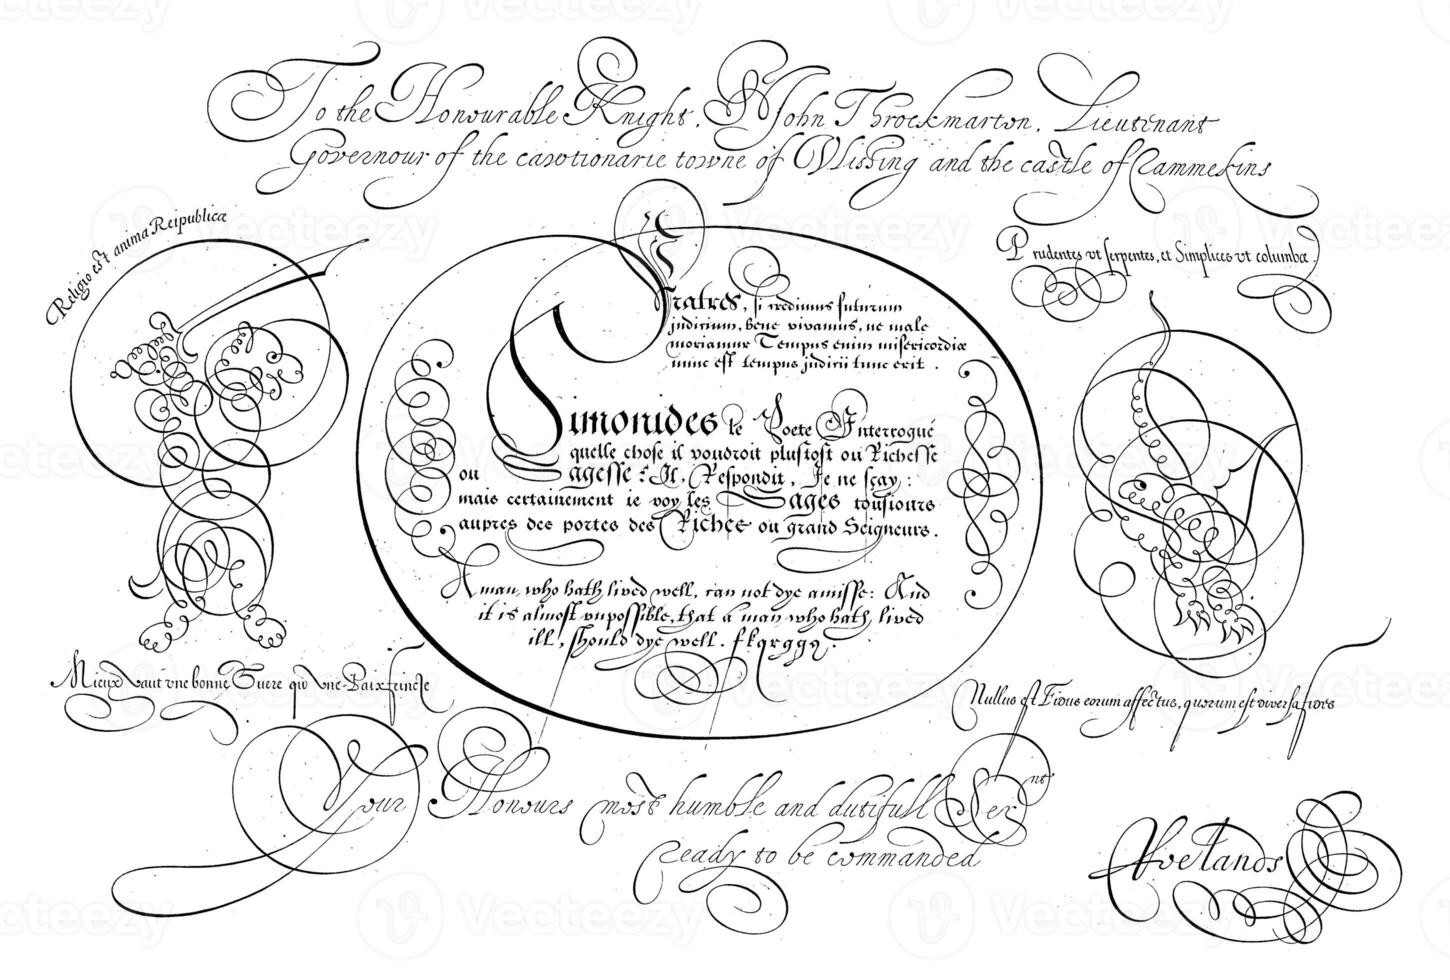 To the Honourable Knight. Sr John Throckmarton. Lieutenant
Governour of the cautionarie towne of Vlissing and the castle of Rammekins
Religio est anima Reipublicæ
Prudentes vt serpentes, et Simplices vt columbæ.
Fratres, si credimus futurum
judicium, bene vivamus, ne male
moriamur Tempus enim misericordiæ
nunc est tempus judicii tunc erit.
Simonides le Poete Interroqué
quelle chose il voudroit plustost ou Richesse
ou Sagesse: Il, Respondit, Je ne sçay:
mais certainement ie voy les Sages tousiours
aupres des portes des Riches ou grand Seigneurs.
A man, who hath lived well, can not dye amisse: And
it is almost vnpossible, that a man, who hath, lived
ill, should dye well.
Mieux vaut vne bonne Guere qu vne Paix
Nullus est Fidus eorum affectus, quorum est diversa fides
Your Honours most humble and dutifull Sernt
Ready to be commanded